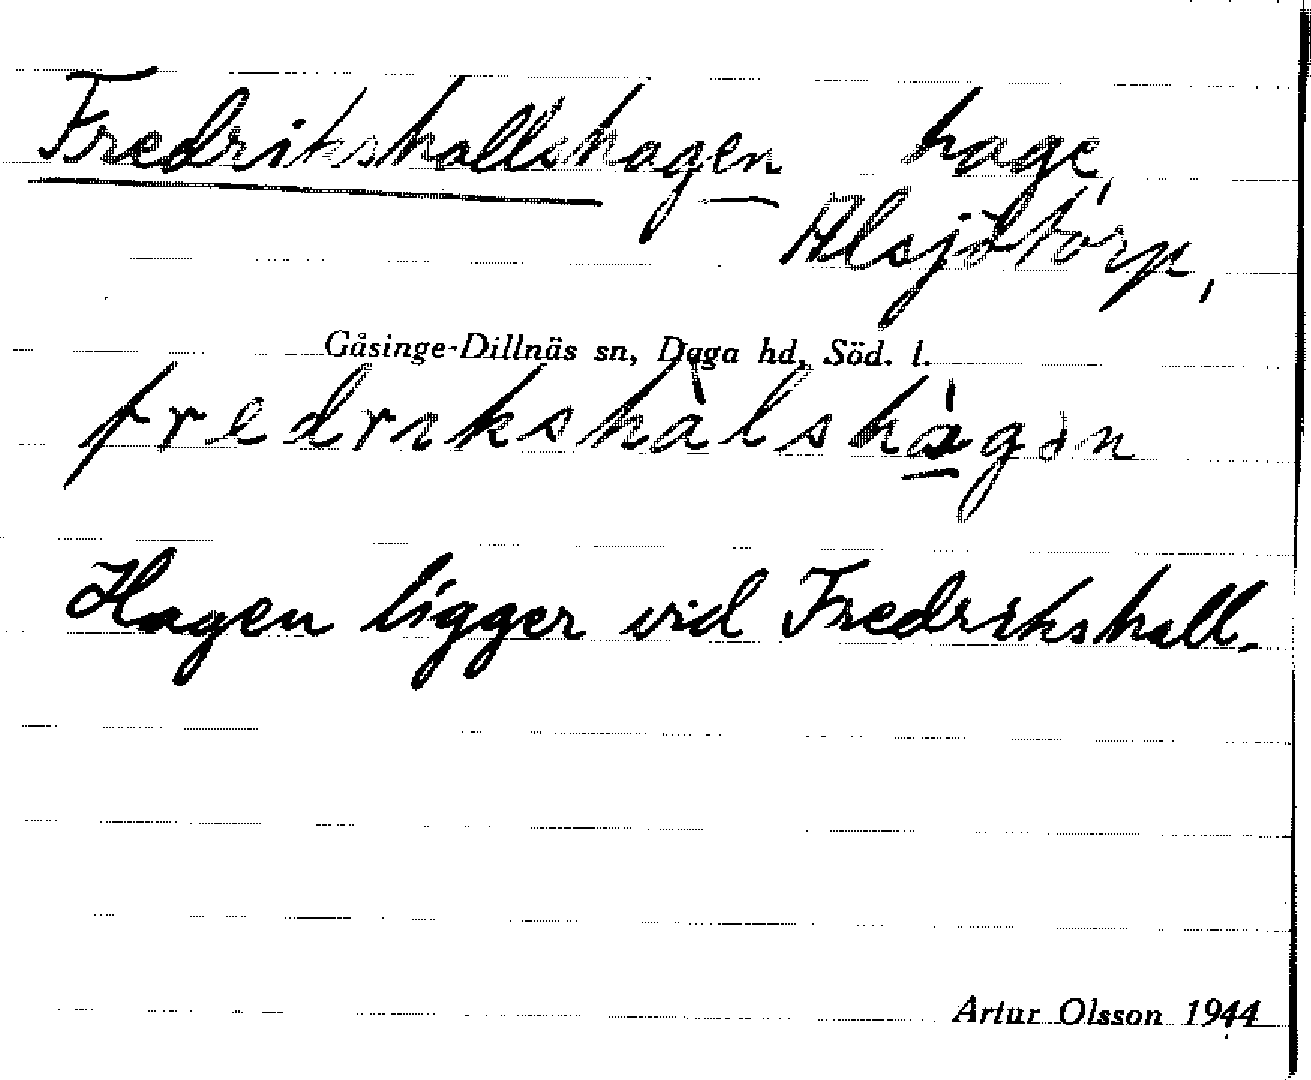 Fredrikshallshagen hage,
Alsjötorp,
Gåsinge-Dillnäs sn, Daga hd, Söd. l.
fredrikshàlshá̱gən
Hagen ligger vid Fredrikshall.
Artur Olsson 1944